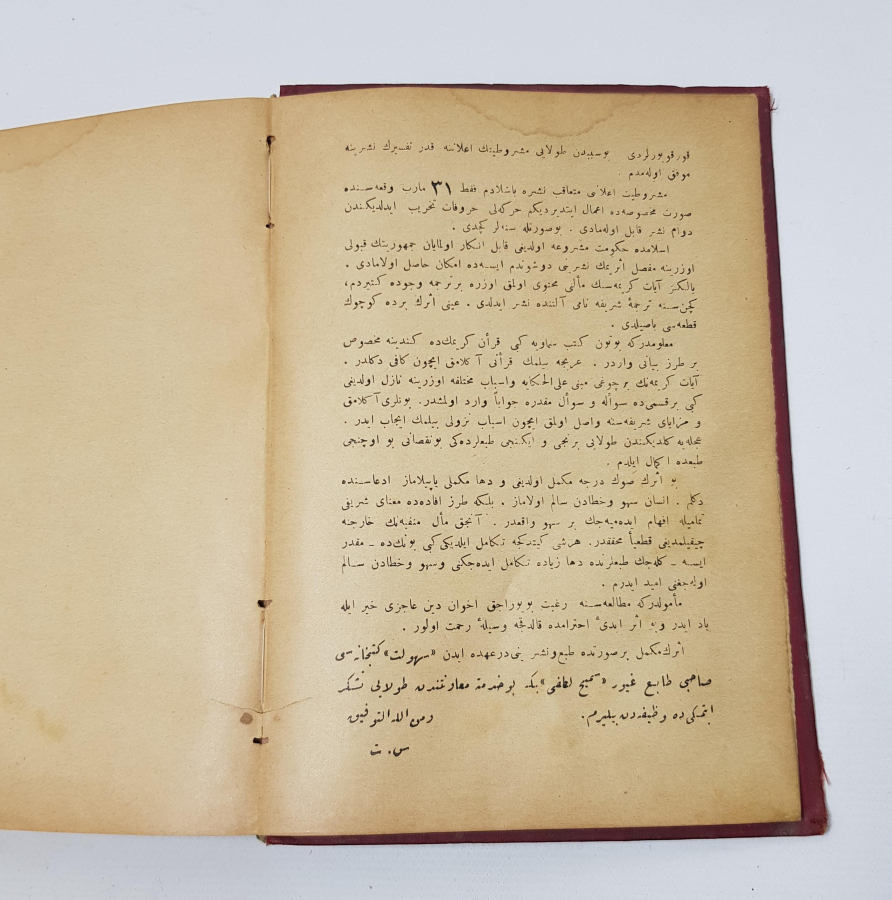 قورقویورلردی بوسببدن طولایی مشروطیتك اعلاننه قدر تفسیرك نشرینه
موفق اوله‌مدم .
مشروطیت اعلانی متعاقب نشره باشلادم فقط ٣١ مارت وقعه‌سنده
صورت مخصوصه‌ده اعمال ایتدیردیكم حركه‌لی حروفات تخریب ایدلدیكندن
دوام نشر قابل اوله‌مادی . بوصورتله سنه‌لر كچدی .
اسلامده حكومت مشروعه اولدیغی قابل انكار اولمایان جمهوریتك قبولی
اوزرینه مفصل اثریمك نشرینی دوشوندم ایسه‌ده امكان حاصل اولامادی .
یالكنز آیات كریمه‌نك مآلنی محتوی اولمق اوزره برترجمه وجوده كتیردم،
كچن‌سنه ترجمهٔ شریفه نامی آلتنده نشر ایدلدی . عینی اثرك برده كوچوك
قطعه‌سی باصیلدی .
معلومدركه بوتون كتب سماویه كبی قرآن كریمك‌ده كندینه مخصوص
بر طرز بیانی واردر . عربجه بیلمك قرآنی آكلامق ایچون كافی دكلدر .
آیات كریمه‌نك برچوغی مبنی علی‌الحكایه واسباب مختلفه اوزرینه نازل اولدیغی
كبی برقسمی‌ده سواله و سوأل مقدره جواباً وارد اولمشدر. بونلری آكلامق
و مزایای شریفه‌سنه واصل اولمق ایچون اسباب نزولی بیلمك ایجاب ایدر .
عجله‌یه كلدیكندن طولایی برنجی و ایكنجی طبعلرده‌كی بونقصانی بو اوچنجی
طبعده اكمال ایلدم .
بو اثرك صوك درجه مكمل اولدیغی و دها مكملی یاپیلاماز ادعاسنده
دكلم . انسان سهو وخطادن سالم اولاماز . بلكه طرز افاده‌ده معنای شریفی
تمامیله افهام ایده‌میه‌جك بر سهو واقعدر . آنجق مأل منیفه‌نك خارجنه
چیقیلمدیغی قطعیاً محققدر. هرشی كیتدكجه تكامل ایلدیكی‌كبی بونك‌ده ـ مقدر
ایسه ـ كله‌جك طبعلرنده دها زیاده تكامل ایده‌جكنی وسهو وخطادن سالم
اوله‌جغنی امید ایدرم .
مأمولدركه مطالعه‌سنه رغبت بویوراجق اخوان دین عاجزی خیر ایله
یاد ایدر وبو اثر ابدئ احترامده قالدقجه وسیلهٔ رحمت اولور .
اثرك مكمل برصورتده طبع‌ونشرینی‌درعهده ایدن «سهولت» كتبخانه‌سی
صاحبی طابع غیور «سمیح لطفی» بكه بوخدمته معاونتندن طولایی تشكر
ایتمكی‌ده وظیفه‌دن بیلیرم. ومن الله التوفیق
س . ت